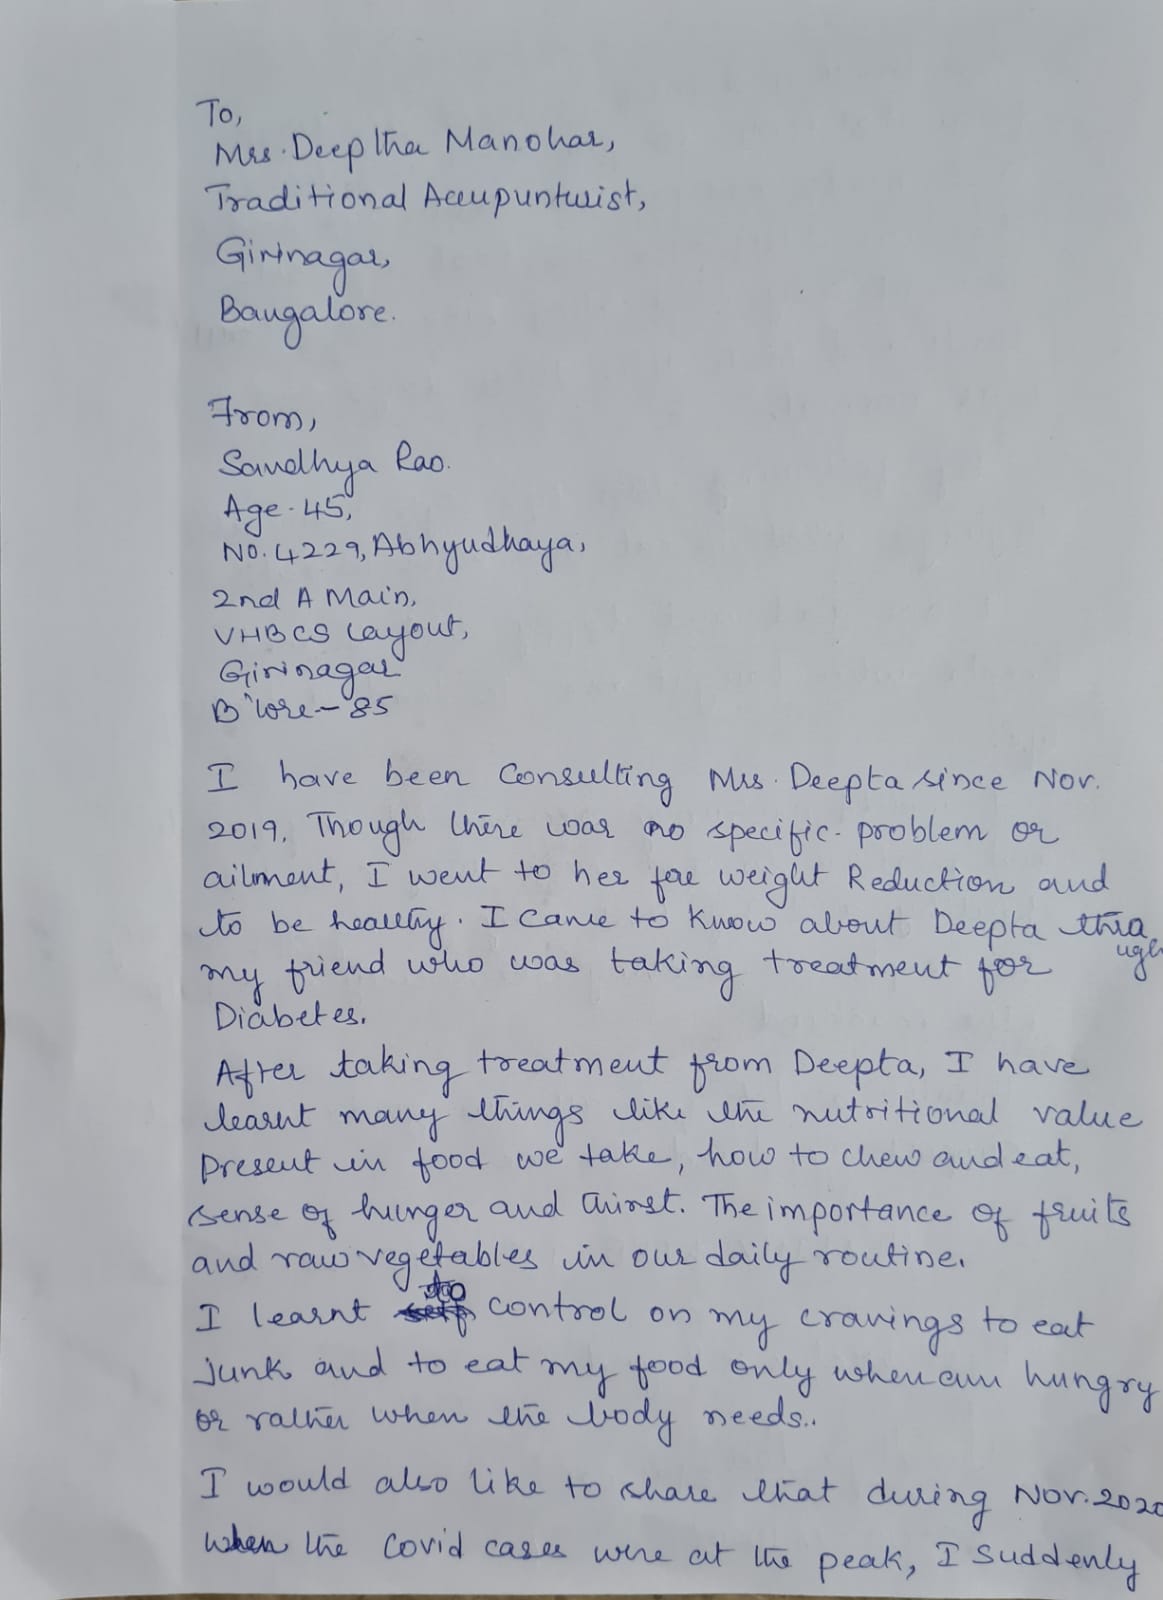 To,
Mrs. Deeptha Manohar,
Traditional Accupunturist,
Girinagar,
Bangalore.
From,
Sandhya Rao.
Age. 45,
No. 4229, Abhyudhaya,
2nd A Main,
VHBCS Layout,
Girinagar
B'lore - 85
I have been Consulting Mrs. Deepta since Nov.
2019. Though there was no specific problem or
ailment, I went to her for weight Reduction and
to be healthy. I came to know about Deepta throough
my friend who was taking treatment for
Diabetes.
After taking treatment from Deepta, I have
learnt many things like the nutritional value
present in food we take, how to chew and eat,
sense of hunger and thirst. The importance of fruits
and raw vegetables in our daily routine.
I learnt to control on my cravings to eat
junk and to eat my food only when am hungry
or rather when the body needs..
I would also like to share that during Nov. 2020
when the Covid cases were at the peak, I suddenly